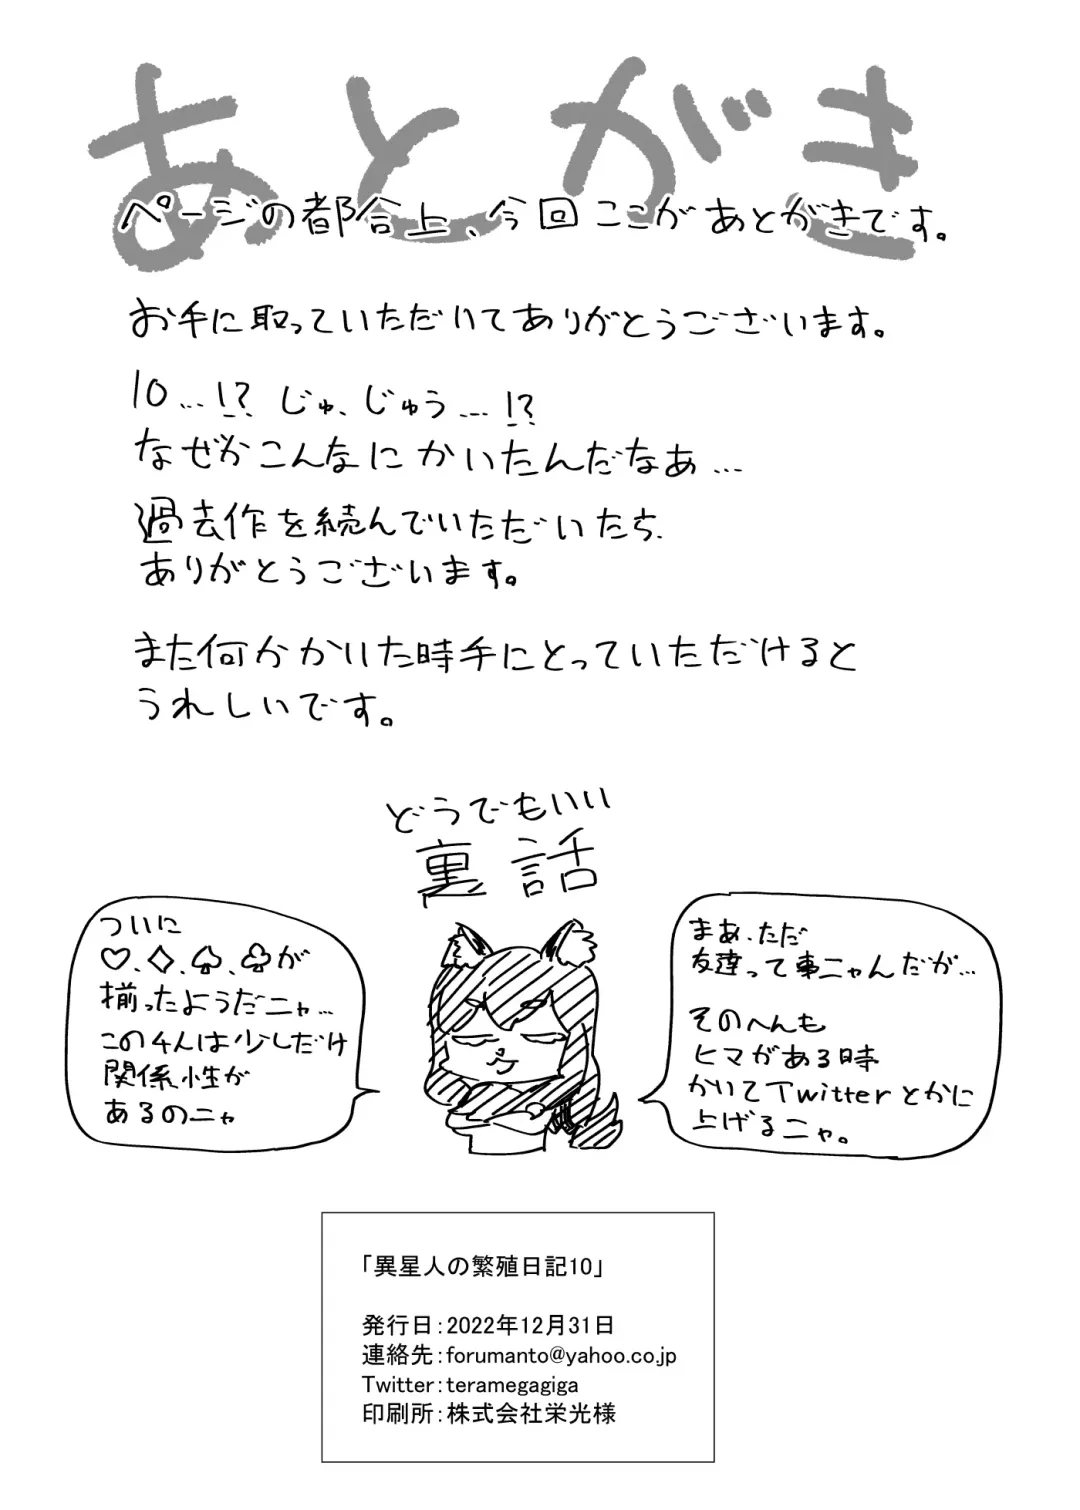 あとがき
ページの都合上、今回ここがあとがきです。
お手に取っていただいてありがとうございます。
10...!? じゅ、じゅう...!?
なぜかこんなにかいたんだなあ...
過去作を続んでいただいたち、
ありがとうございます。
また何かかいた時手にとっていただけると
うれしいです。
どうでもいい
裏話
ついに
♡、◇、♤、♧が
揃ったようだニャ...
この4人は少しだけ
関係性が
あるのニャ
まあ、ただ
友達って事ニャんだが...
そのへんも
ヒマがある時
かいてTwitterとかに
上げるニャ。
「異星人の繁殖日記10」
発行日：2022年12月31日
連絡先：forumanto@yahoo.co.jp
Twitter：teramegagiga
印刷所：株式会社栄光様